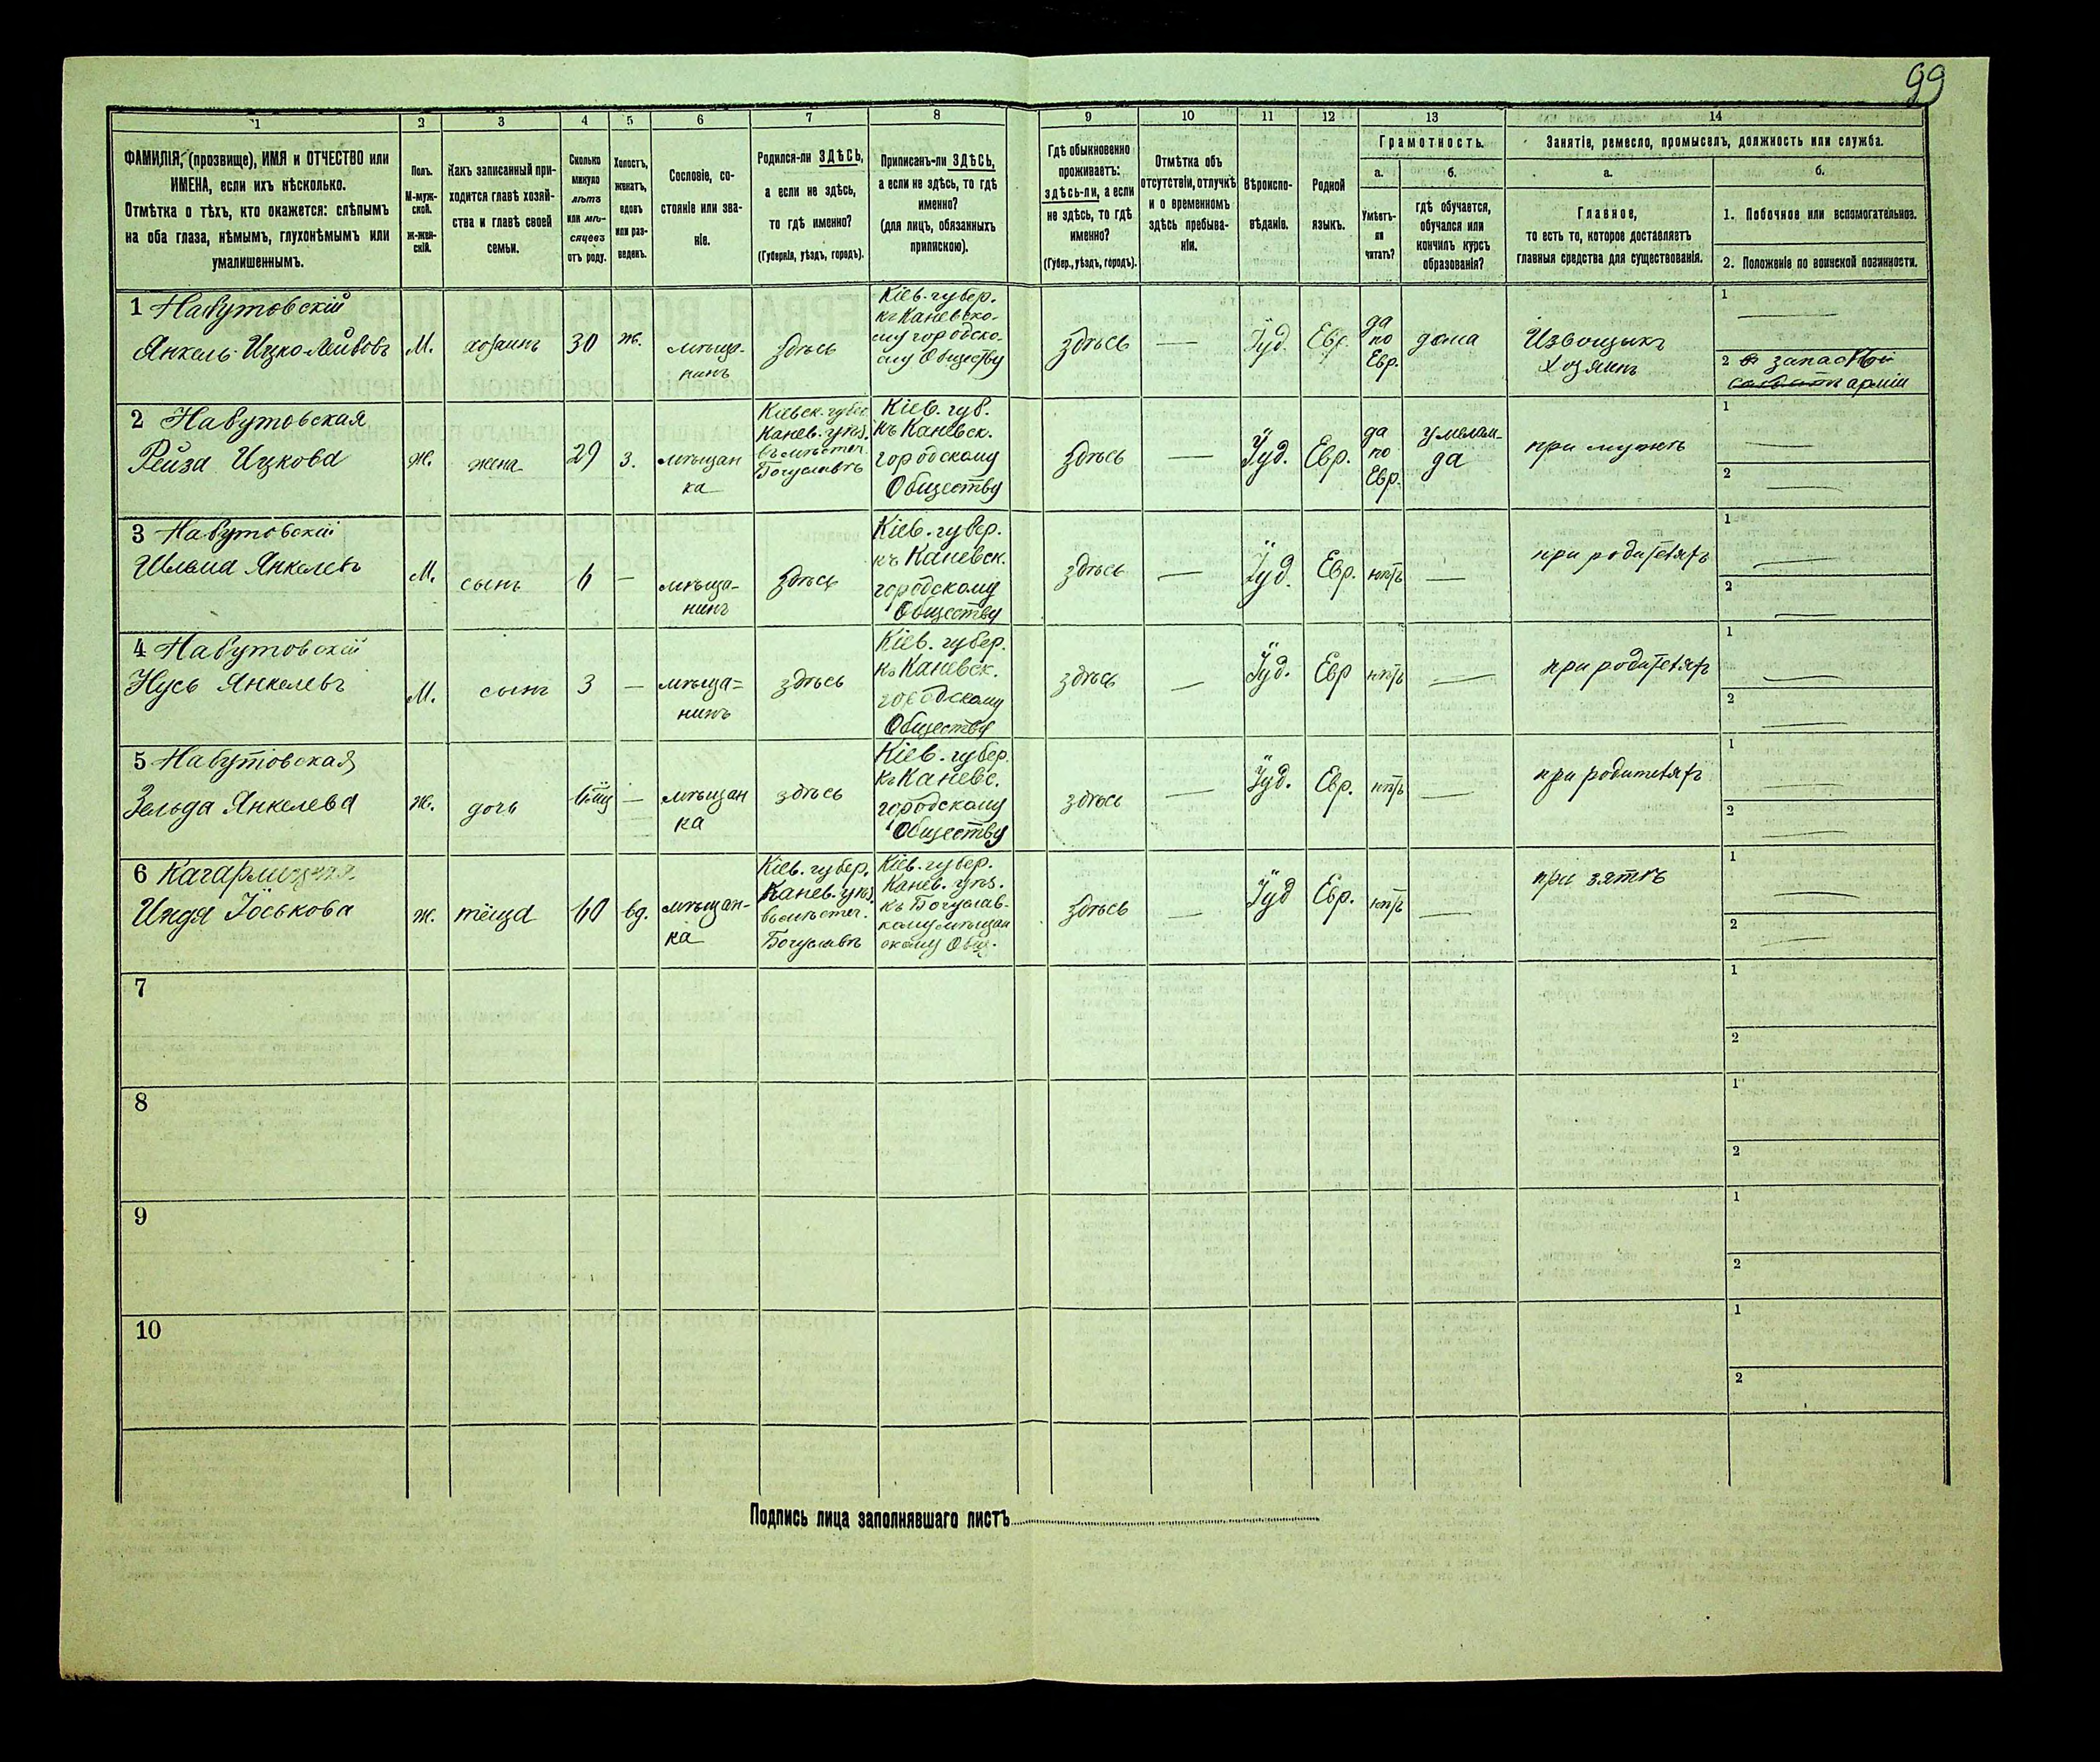 99
1
2
3
4
5
6
7
8
9
10
11
12
13
14
ФАМИЛІЯ, (прозвище), ИМЯ и ОТЧЕСТВО или
ИМЕНА, если ихъ нѣсколько.
Отмѣтка о тѣхъ, кто окажется: слѣпымъ
на оба глаза, нѣмымъ, глухонѣмымъ или
умалишеннымъ.
Полъ.
М-муж-
ской.
ж-жен-
скій.
Какъ записанный при-
ходится главѣ хозяй-
ства и главѣ своей
семьи.
Сколько
минуло
лѣтъ
или мѣ-
сяцевъ
отъ роду.
Холостъ,
женатъ,
вдовъ
или раз-
веденъ.
Сословіе, со-
стояніе или зва-
ніе.
Родился-ли ЗДѢСЬ,
а если не здѣсь,
то гдѣ именно?
(Губернія, уѣздъ, городъ).
Приписанъ-ли ЗДѢСЬ,
а если не здѣсь, то гдѣ
именно?
(для лицъ, обязанныхъ
припискою).
Гдѣ обыкновенно
проживаетъ:
здѣсь-ли, а если
не здѣсь, то гдѣ
именно?
(Губер., уѣздъ, городъ).
Отмѣтка объ
отсутствіи, отлучкѣ
и о временномъ
здѣсь пребыва-
ніи.
Вѣроиспо-
вѣданіе.
Родной
языкъ.
Грамотность.
а.
Умѣетъ-
ли
читать?
б.
гдѣ обучается,
обучался или
кончилъ курсъ
образованія?
Занятіе, ремесло, промыселъ, должность или служба.
а.
Главное,
то есть то, которое доставляетъ
главныя средства для существованія.
б.
1. Побочное или вспомогательное.
2. Положеніе по воинской повинности.
1 Набутовскій
Янкель Ицко-Лейбовъ
М.
хозяинъ
30
ж.
мѣща-
нинъ
здѣсь
Кіев. губер.
къ Каневско-
му городско-
му Обществу
здѣсь
—
Іуд.
Евр.
да
по
Евр.
дома
Извощикъ
хозяинъ
1
—
2
запасной
арміи
2 Набутовская
Рейза Ицкова
ж.
жена
29
з.
мѣщан
ка
Кіевск. губер.
Канев. уѣз.
въ мѣстеч.
Богуславѣ
Кіев. губ.
къ Каневск.
городскому
Обществу
здѣсь
—
Іуд.
Евр.
да
по
Евр.
у мелам-
да
при мужѣ
1
—
2
—
3 Набутовскій
Шлёма Янкелевъ
М.
сынъ
6
—
мѣща-
нинъ
здѣсь
Кіев. губер.
къ Каневск.
городскому
Обществу
здѣсь
—
Іуд.
Евр.
нѣтъ
—
при родителяхъ
1
—
2
—
4 Набутовскій
Нусь Янкелевъ
М.
сынъ
3
—
мѣща=
нинъ
здѣсь
Кіев. губер.
къ Каневск.
городскому
Обществу
здѣсь
—
Іуд.
Евр
нѣтъ
—
при родителяхъ
1
—
2
—
5 Набутовская
Зельда Янкелева
ж.
дочь
—
мѣщан
ка
здѣсь
Кіев. губер.
къ Каневс.
городскому
Обществу
здѣсь
—
Іуд.
Евр.
нѣтъ
—
при родителяхъ
1
—
2
—
6 Кагарлицкая
Индя Іоськова
ж.
тёща
60
вд.
мѣщан-
ка
Кіев. губер.
Канев. уѣз.
въ мѣстеч.
Богуславѣ
Кіев. губер.
Канев. уѣз.
къ Богуслав-
кому мѣщан
скому Общ.
здѣсь
—
Іуд
Евр.
нѣтъ
—
при зятѣ
1
—
2
—
7
1
2
8
1
2
9
1
2
10
1
2
Подпись лица заполнявшаго листъ